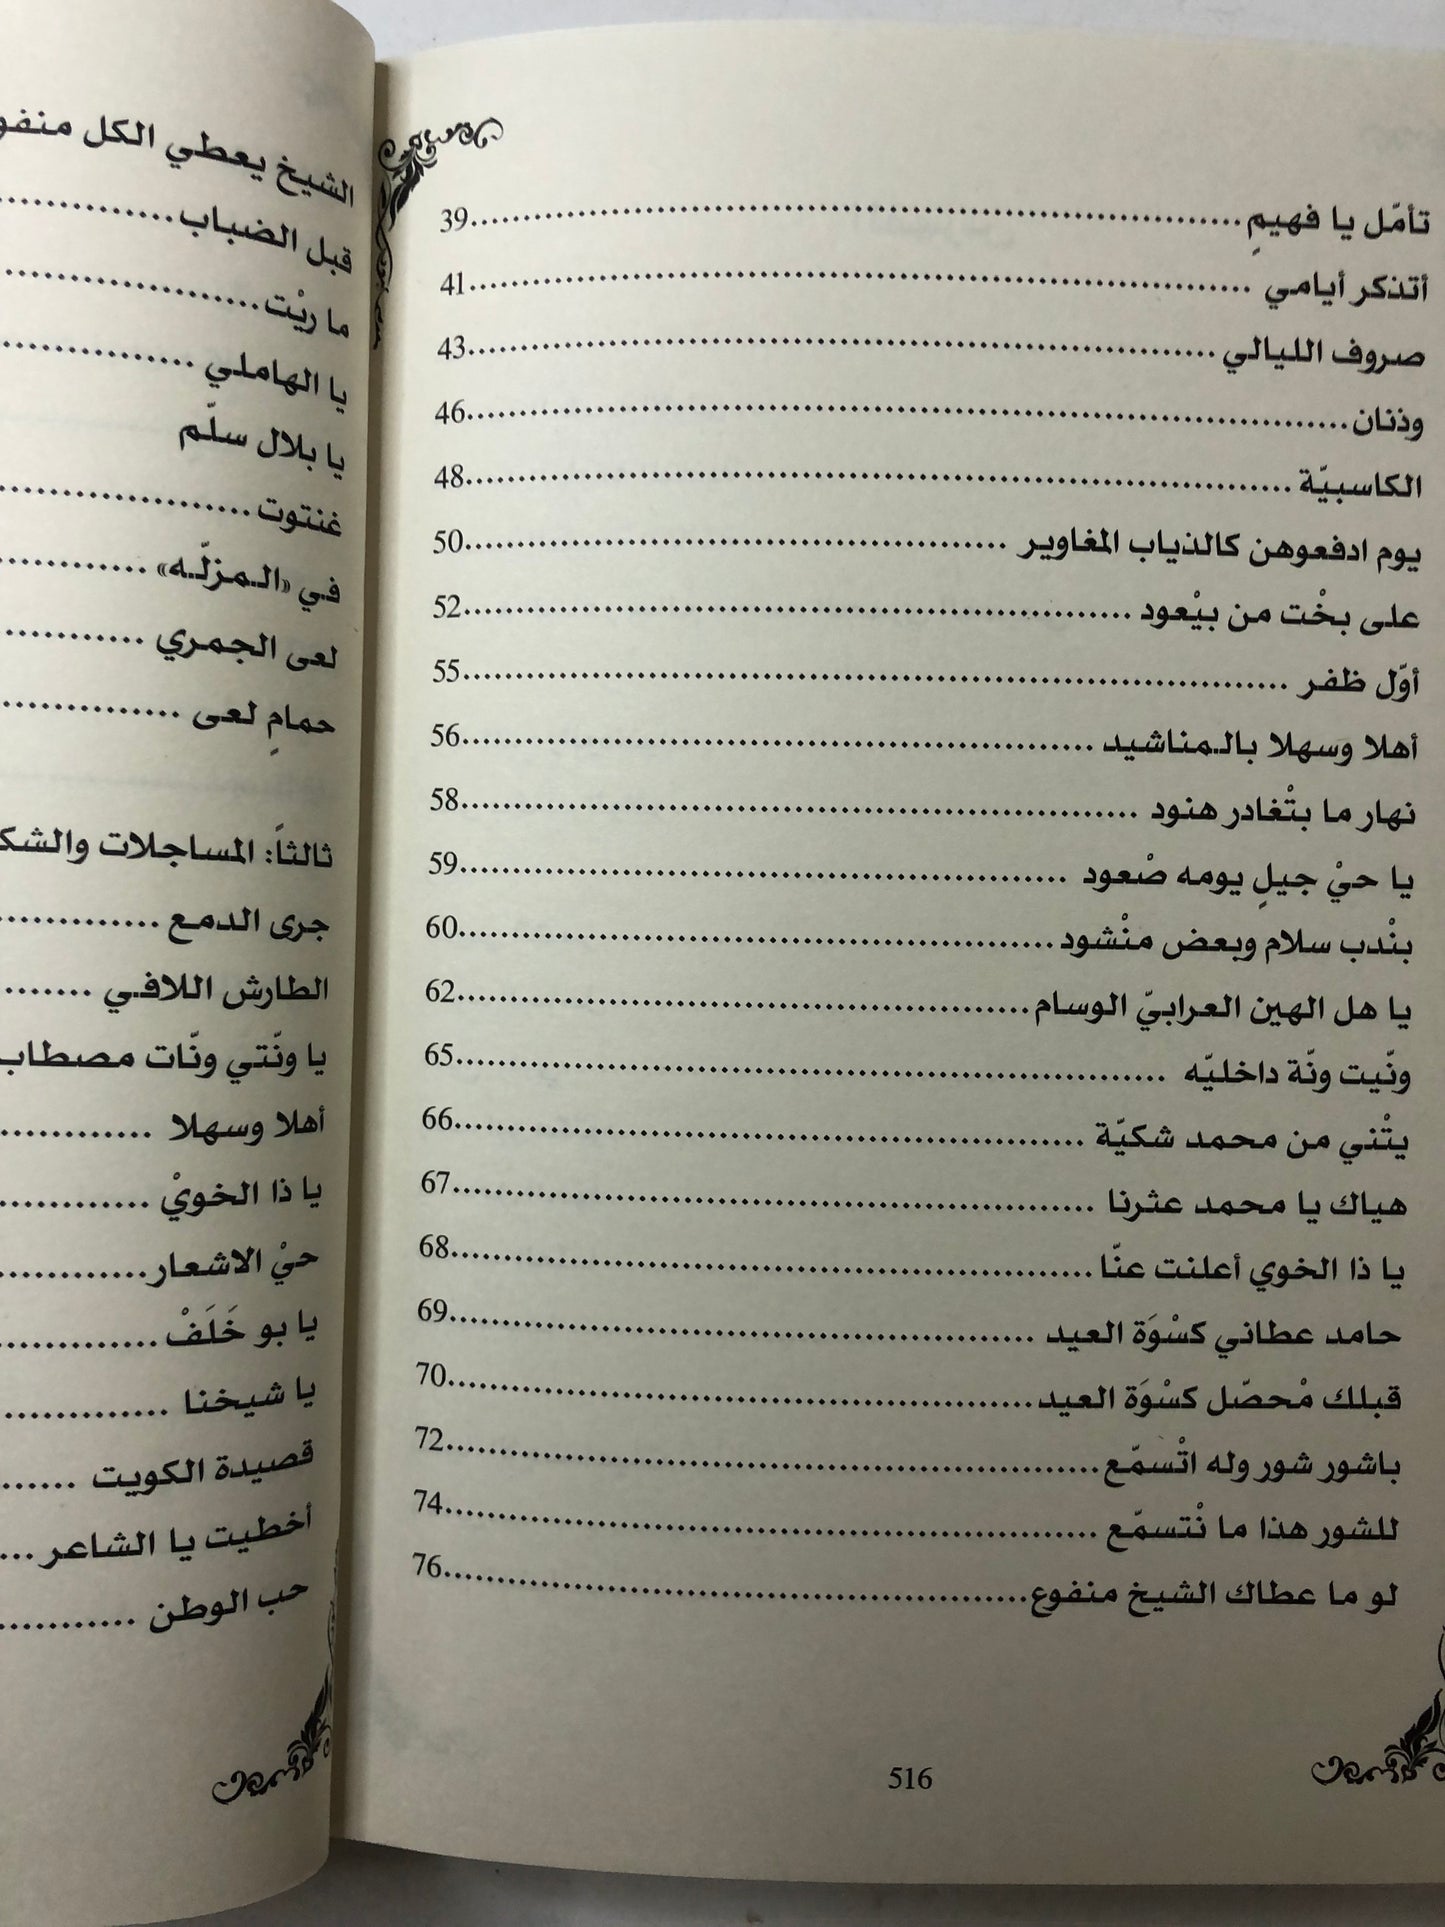 تأمّل يا فهيمِ........................39
أتذكر أيامي ........................41
صروف الليالي ........................43
وذنان........................46
الكاسبيّة ........................48
يوم ادفعوهن كالذياب المغاوير ........................50
على بخْت من بيْعود ........................52
أوّل ظفر ........................55
أهلا وسهلا بالـمناشيد ........................56
نهار ما بتْغادر هنود ........................58
يا حيْ جيلٍ يومه صْعود ........................59
بنْدب سلام وبعض منْشود ........................60
يا هل الهين العرابيّ الوسام........................62
ونّيت ونّة داخليّه ........................65
يتْني من محمد شكيّة ........................66
هياك يا محمد عثرنا ........................67
يا ذا الخوي أعلنت عنّا ........................68
حامد عطاني كسْوَة العيد ........................69
قبلك مْحصّل كسْوَة العيد........................70
باشور شور وله اتْسمّع........................72
للشور هذا ما نْتسمّع ........................74
لو ما عطاك الشيخ منفوع........................76
516
الشيخ يعطي الكل
قبل الضباب........................
ما ريْت........................
يا الهاملي ........................
يا بلال سلّم
غنتوت........................
في «الـمزلّـه» ........................
لعى الجمري ........................
حمامٍ لعى ........................
ثالثاً: المساجلات
جرى الدمع ........................
الطارش اللافي ........................
يا ونّتي ونّات
أهلا وسهلا ........................
يا ذا الخويْ ........................
حيْ الاشعار........................
يا بو خَلَفْ ........................
يا شيخنا ........................
قصيدة الكويت ........................
أخطيت يا الشاعر ...
حب الوطن ........................